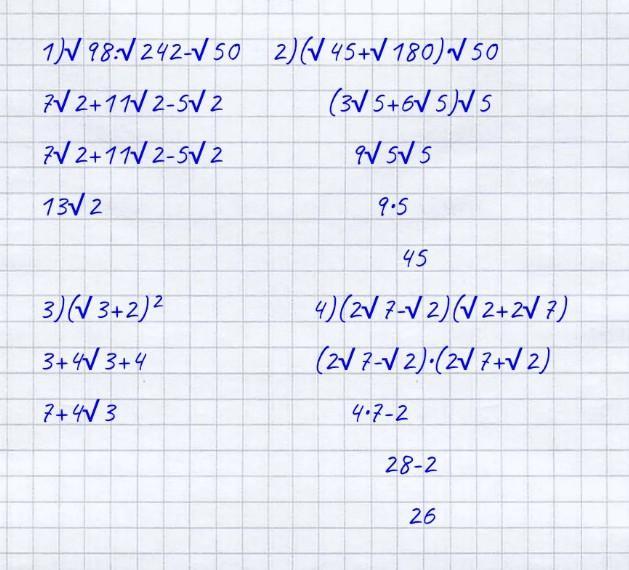 1)√98:√242-√50
7√2+11√2-5√2
7√2+11√2-5√2
13√2
2)(√45+√180)√50
(3√5+6√5)√5
9√5√5
9·5
45
3)(√3+2)²
3+4√3+4
7+4√3
4)(2√7-√2)(√2+2√7)
(2√7-√2)·(2√7+√2)
4·7-2
28-2
26